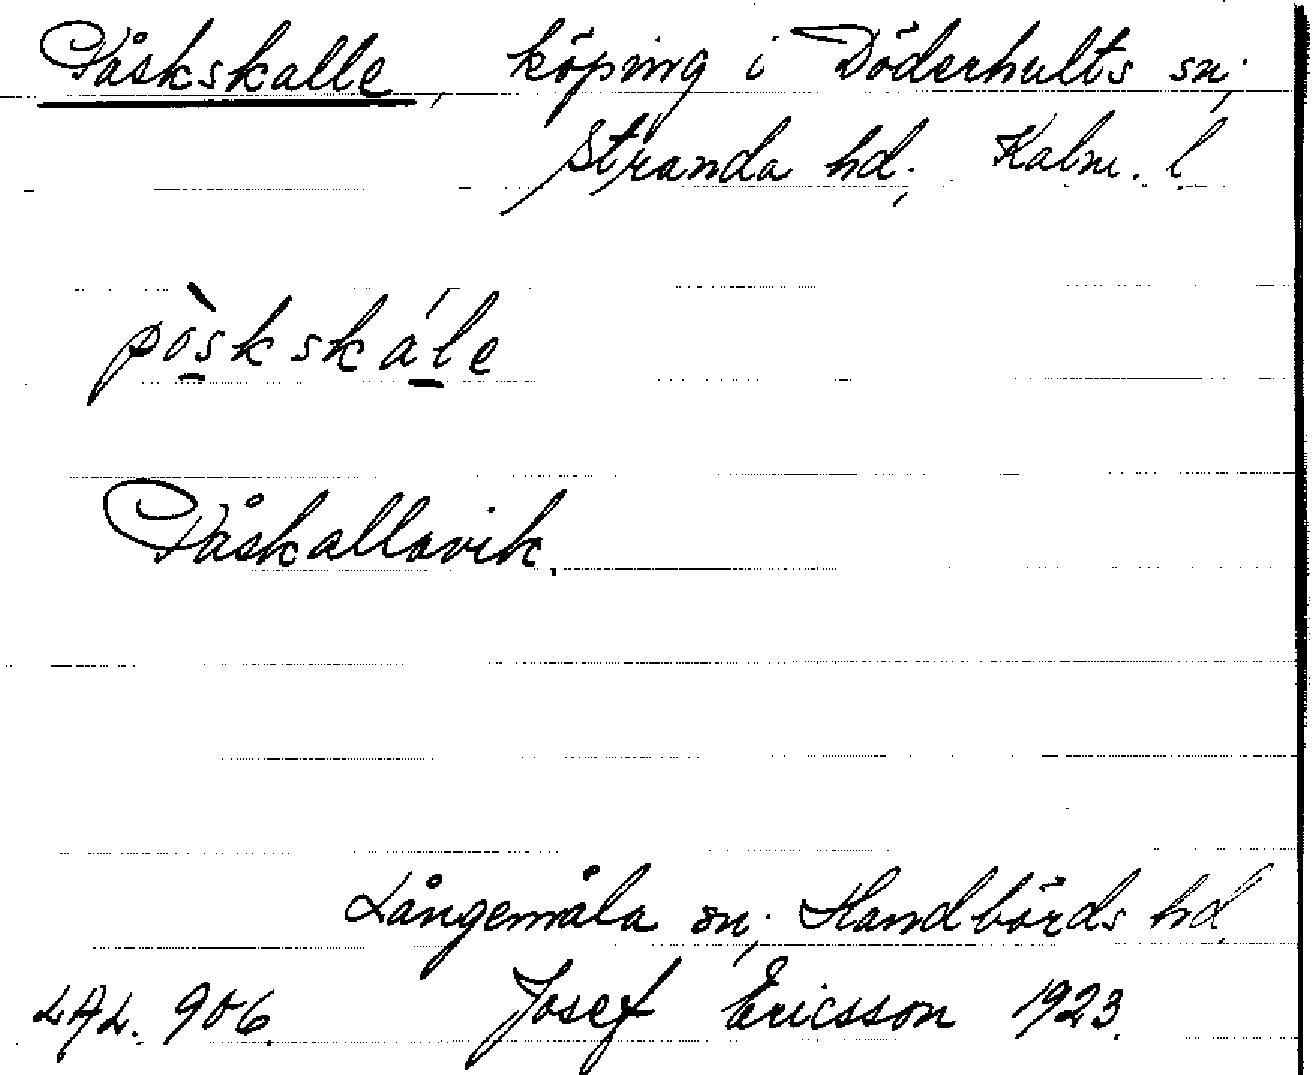 Påskskalle, köping i Döderhults sn;
Stranda hd; Kalm. l.
pòskskále
Påskallavik.
Långemåla sn; Handbörds hd.
LAL. 906. Josef Ericsson 1923.